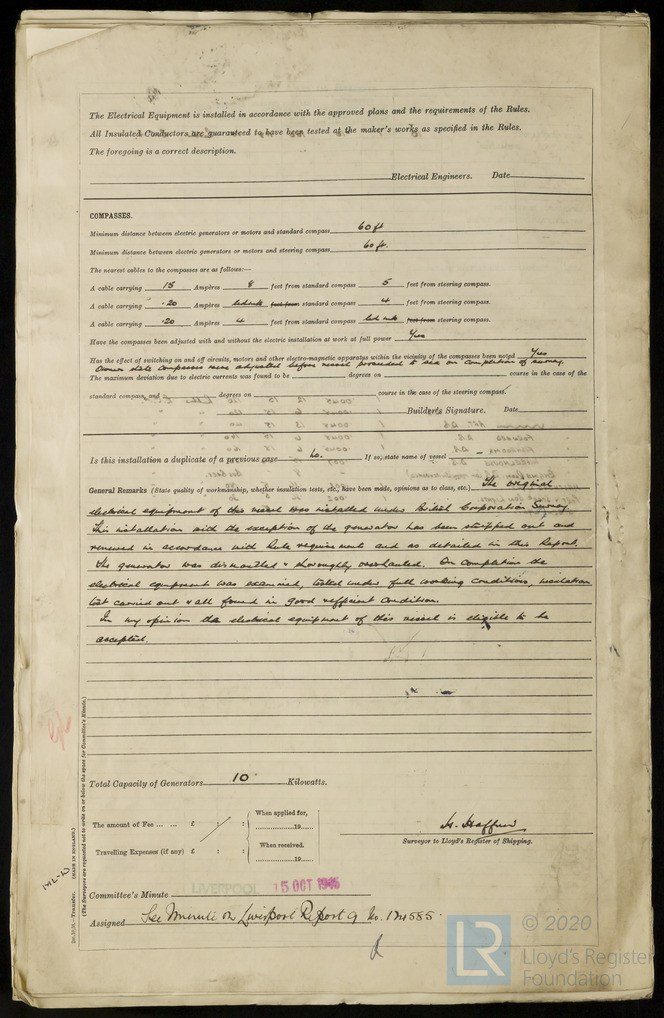 The Electrical Equipment is installed in accordance with the approved plans and the requirements of the Rules.
All Insulated Conductors are guaranteed to have been tested at the maker's works as specified in the Rules.
The foregoing is a correct description.
Electrical Engineers. Date
COMPASSES.
Minimum distance between electric generators or motors and standard compass 60 ft
Minimum distance between electric generators or motors and steering compass 60 ft.
The nearest cables to the compasses are as follows:—
A cable carrying 15 Ampères 8 feet from standard compass 5 feet from steering compass.
A cable carrying ·20 Ampères led into feet from standard compass 4 feet from steering compass.
A cable carrying ·20 Ampères 4 feet from standard compass led into feet from steering compass.
Have the compasses been adjusted with and without the electric installation at work at full power Yes
Has the effect of switching on and off circuits, motors and other electro-magnetic apparatus within the vicinity of the compasses been noted Yes
Owners state compasses were adjusted before vessel proceeded to sea on completion of survey.
The maximum deviation due to electric currents was found to be degrees on course in the case of the
standard compass, and degrees on course in the case of the steering compass.
Builder's Signature. Date
Is this installation a duplicate of a previous case If so, state name of vessel -
General Remarks (State quality of workmanship, whether insulation tests, etc., have been made, opinions as to class, etc.) The original
electrical equipment of this vessel was installed under British Corporation Survey.
This installation with the exception of the generator has been stripped out and
renewed in accordance with Rule requirement and as detailed in this Report.
The generator was dismantled & thoroughly overhauled. On completion the
electrical equipment was examined, tested under full working conditions, insulation
test carried out & all found in good & efficient condition.
In my opinion the electrical equipment of this vessel is eligible to be
accepted.
Total Capacity of Generators 10 Kilowatts.
The amount of Fee ... ... £ : :
When applied for,
19
Travelling Expenses (if any) £ : :
When received.
19
Surveyor to Lloyd's Register of Shipping.
Committee's Minute LIVERPOOL 15 OCT 1946
Assigned See Minute on Liverpool Report 9 No. 124585.
(MADE IN ENGLAND.)
(The Surveyors are requested not to write on or below the space for Committee's Minute.)
© 2020
LR
Lloyd's Register
Foundation